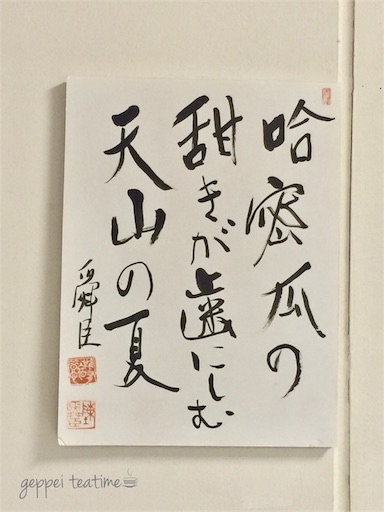 哈密瓜の
甜きが歯にしむ
天山の夏
舜臣
geppei teatime